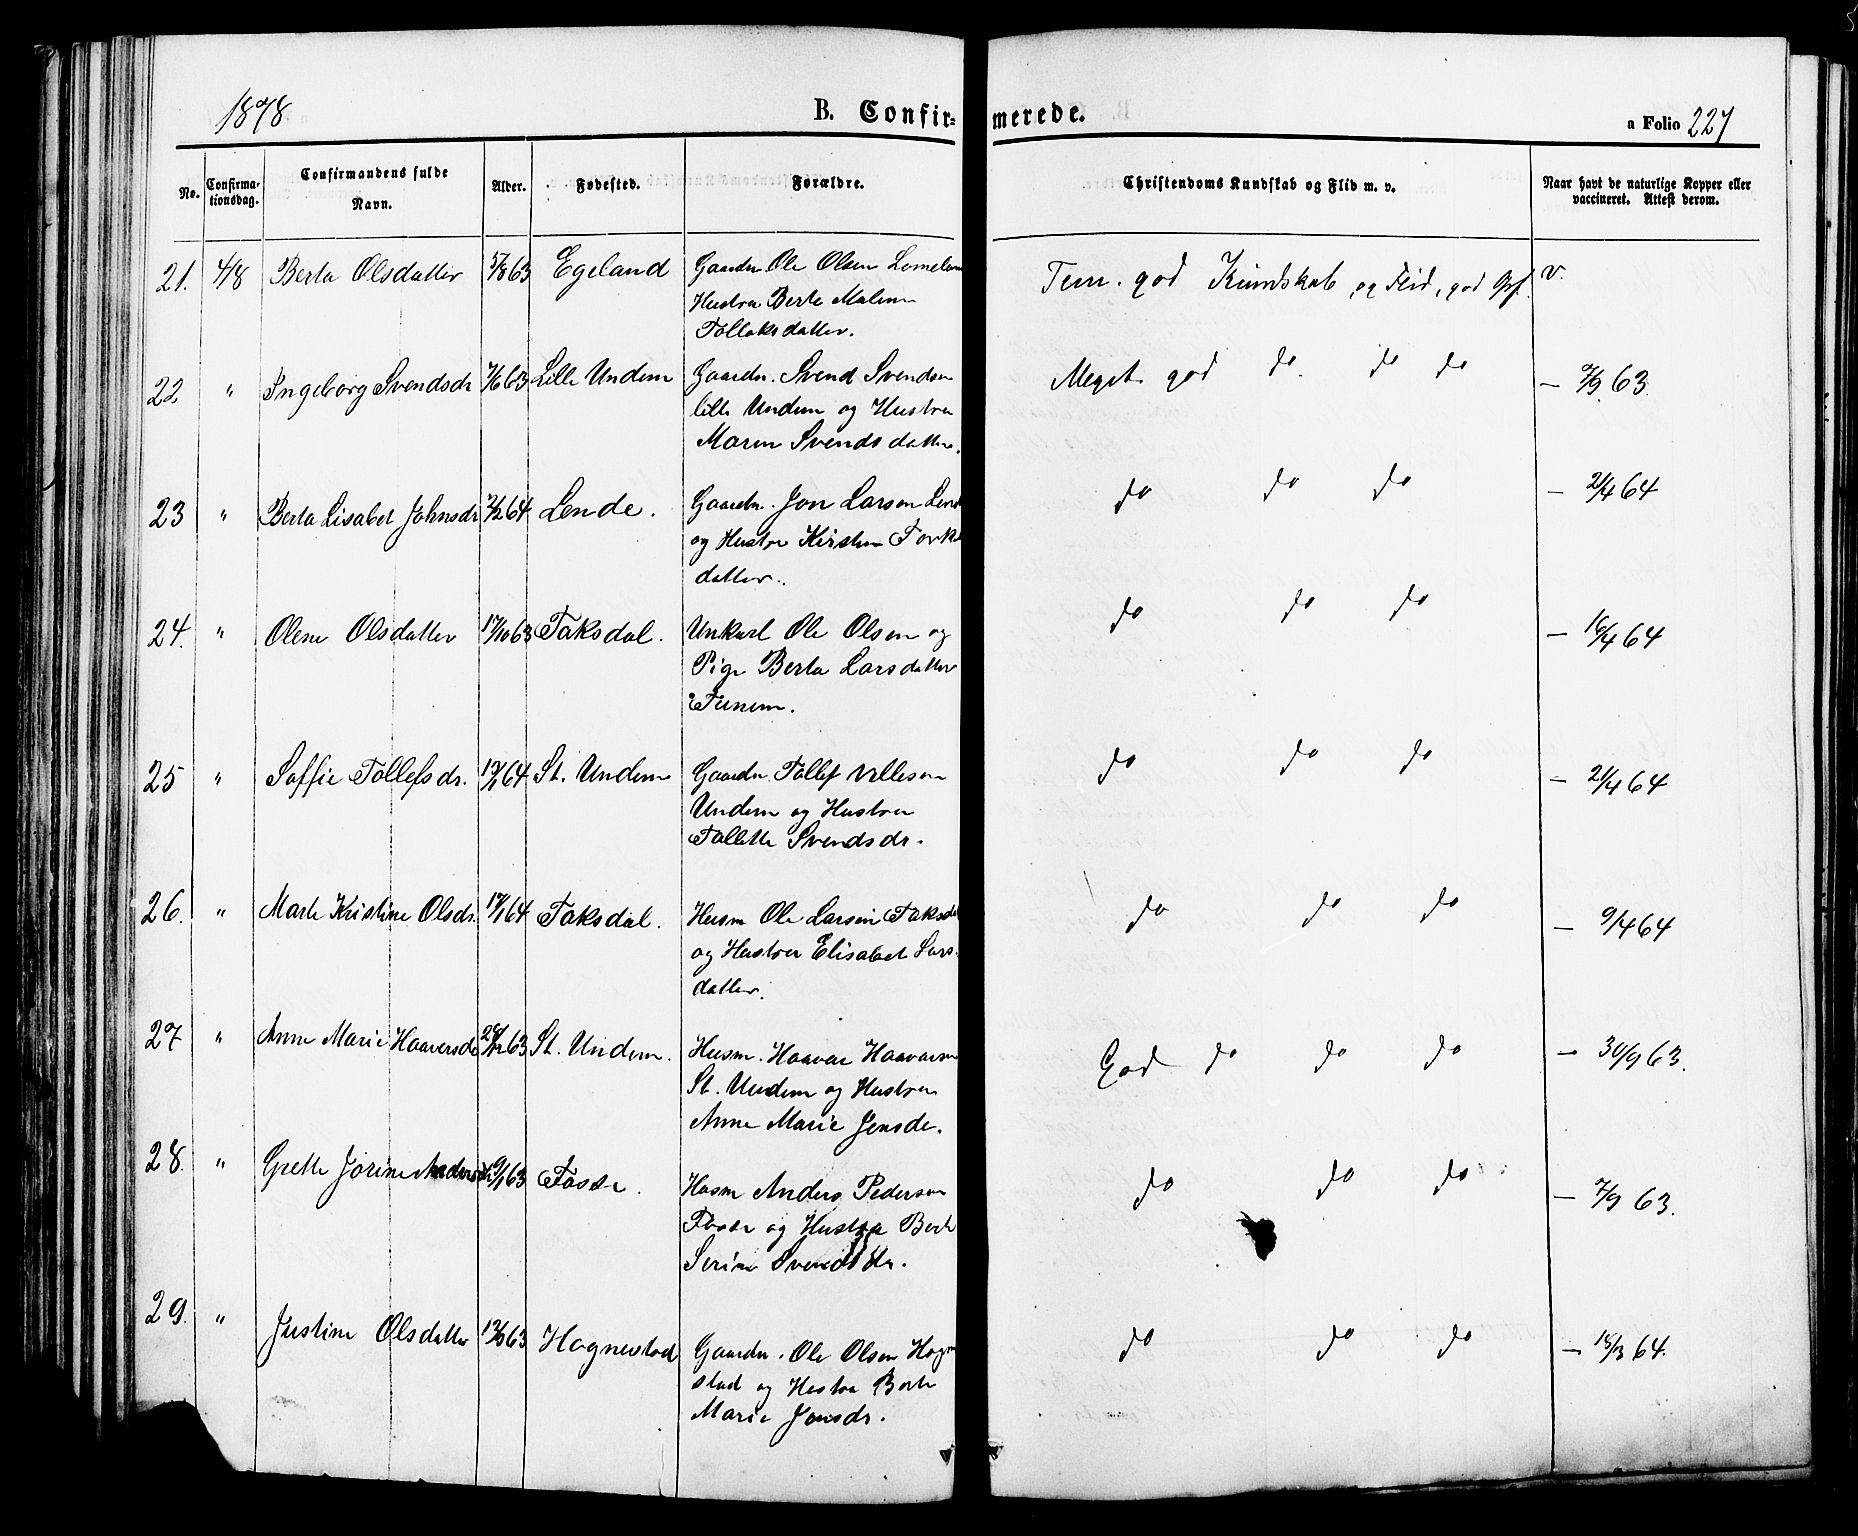 1878 B. Confir- merede. a Folio 227
No. Confirma-tionsdag. Confirmandens fulde Navn. Alder. Fødested. Forældre. Christendoms Kundskab og Flid m. v. Naar havt de naturlige Kopper eller vaccineret. Attest derom.
21. 4/8 Berta Olsdatter 5/8 63 Egeland Gaardm. Ole Olsen
Hustru Berte Malene
Tollaksdatter.
Tem. god Kundskab og Flid, god Opf. v.
22 " Ingeborg Svendsdr 63 Lille Undem Gaardm. Svend Svendsen
lille Undem og Hustru
Maren Svendsdatter.
Meget god do do do – 7/9 63.
23 " Berta Lisabet Johnsdr 64 Lende. Gaardm. Jon Larsen
og Hustru Kirsten
datter.
do do do – 2/4 64
24. " Olene Olsdatter 17/10 63 Taksdal. Unkarl Ole Olsen og
Pige Berta Larsdatter
Tunem.
do do do – 16/4 64
25 " Soffie Tollefsdr. 64 St. Undem Gaardm. Tollef
Undem og Hustru
Tallette Svendsdr.
do do do – 21/4 64
26. " Marte Kristine Olsdr. 17/1 64 Taksdal. Husm Ole Larsen
og Hustru Elisabet Lars-
datter.
do do do – 9/4 64
27 " Anne Marie Haaversdr 63 St. Undem. Husm. Haavar Haavarsen
St. Undem og Hustru
Anne Marie Jensdr.
God do do do – 30/9 63.
28. " Grette Jorine 63 Fosse. Husm Anders Pedersen
Fosse og Hustru Berte
Serine Svendsdr.
do do do – 7/9 63.
29. " Justine Olsdatter 63 Hognestad Gaardm. Ole Olsen Hogne
stad og Hustru Berte
Marie Jonsdr.
do do do – 18/3 64.